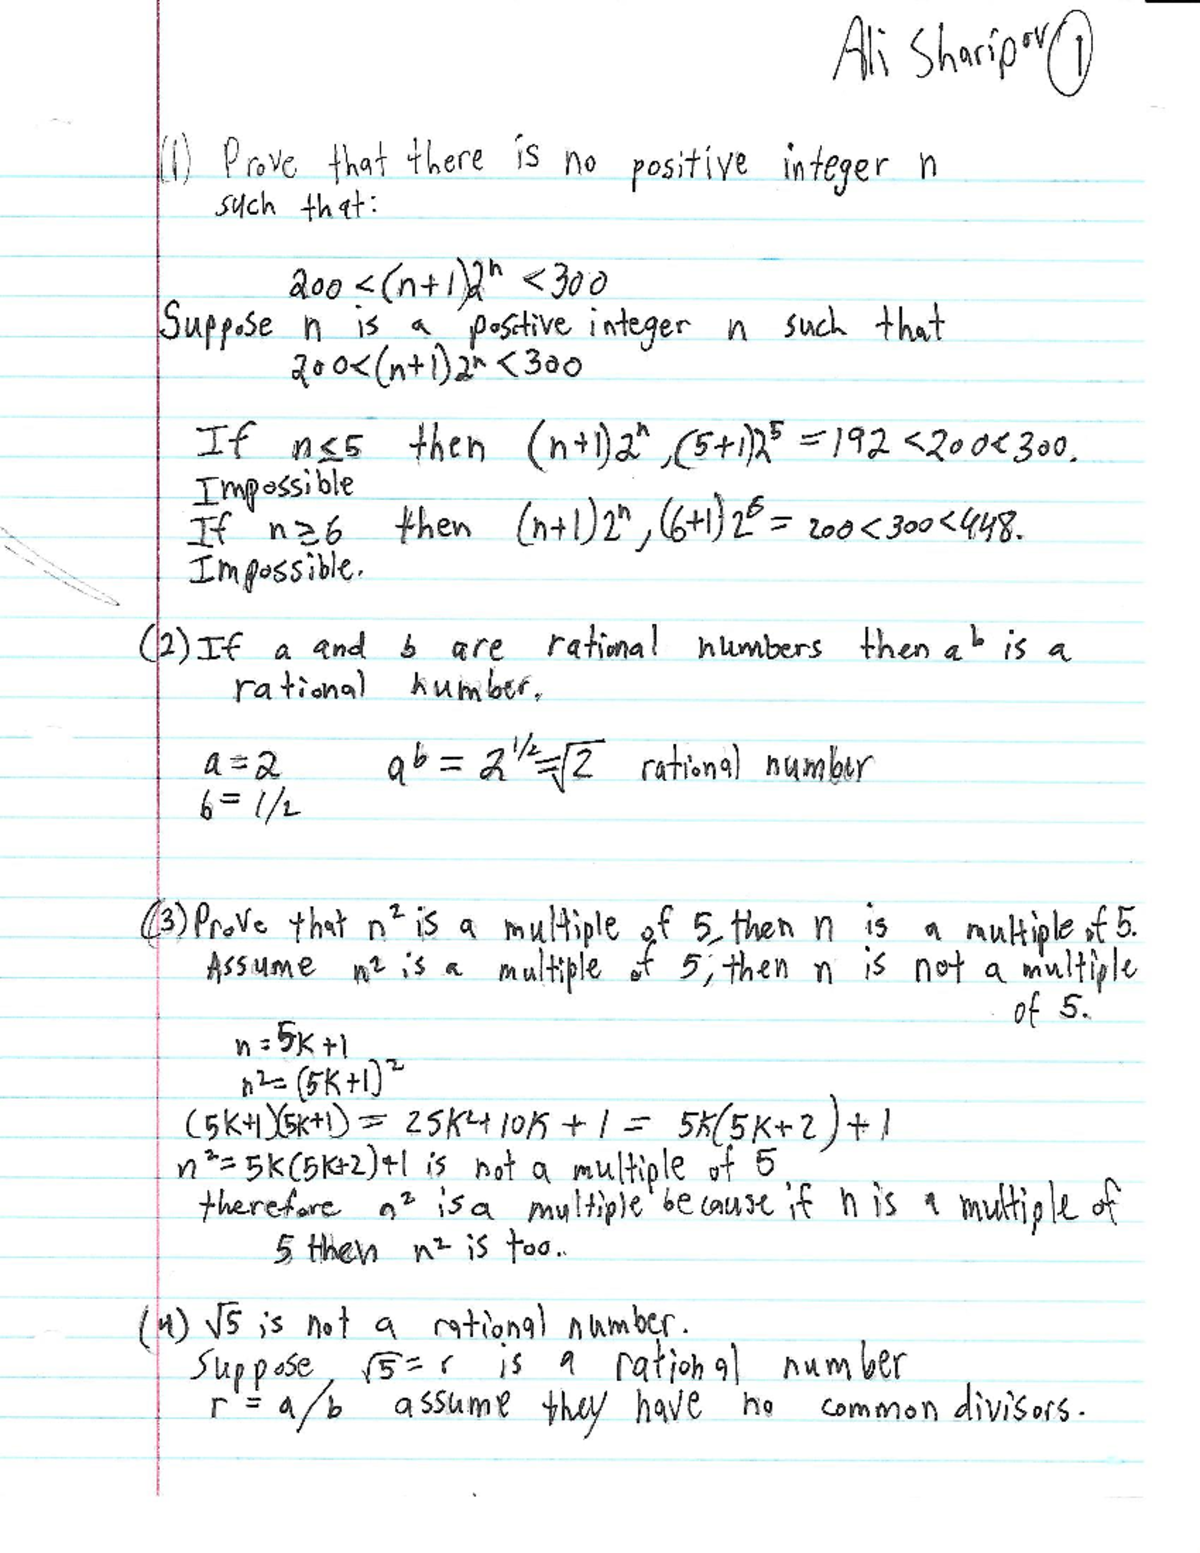 Ali Sharipov 1
(1) Prove that there is no positive integer n
such that:
200 < (n+1)2ⁿ < 300
Suppose n is a positive integer n such that
200<(n+1)2ⁿ<300
If n≤5 then (n+1)2ⁿ,(5+1)2⁵ = 192 <200<300.
Impossible
If n≥6 then (n+1)2ⁿ,(6+1)2⁶ = 200<300<448.
Impossible.
(2) If a and b are rational numbers then aᵇ is a
rational number.
a = 2 aᵇ = 2^1/2 = √2 rational number
b = 1/2
(3) Prove that n² is a multiple of 5, then n is a multiple of 5.
Assume n² is a multiple of 5, then n is not a multiple
of 5.
n = 5k+1
n² = (5k+1)²
(5k+1)(5k+1) = 25k²+10k + 1 = 5k(5k+2)+1
n² = 5k(5k+2)+1 is not a multiple of 5
therefore n² is a multiple because if n is a multiple of
5 then n² is too..
(4) √5 is not a rational number.
Suppose, √5 = r is a rational number
r = a/b assume they have no common divisors.